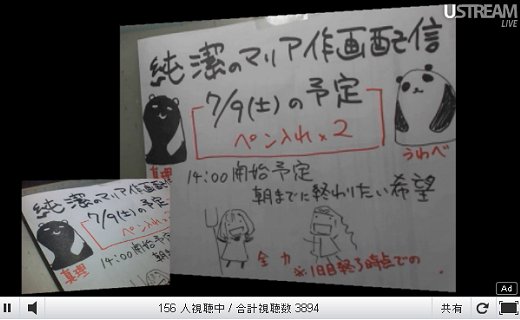 USTREAM
LIVE
純潔のマリア作画配信
7/9(土)の予定
ペン入れ×2
真理
うわべ
14:00開始予定
朝までに終わりたい希望
全力
※1日目終了時点での
純潔のマリア作画配
7/9(土)の予定
ペン入れ
真理
14:00開始予定
Ad
156 人視聴中 / 合計視聴数 3894
共有